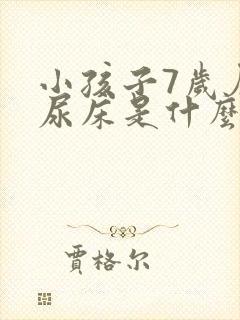 小孩子7歲
尿床是什麼
賈格尔